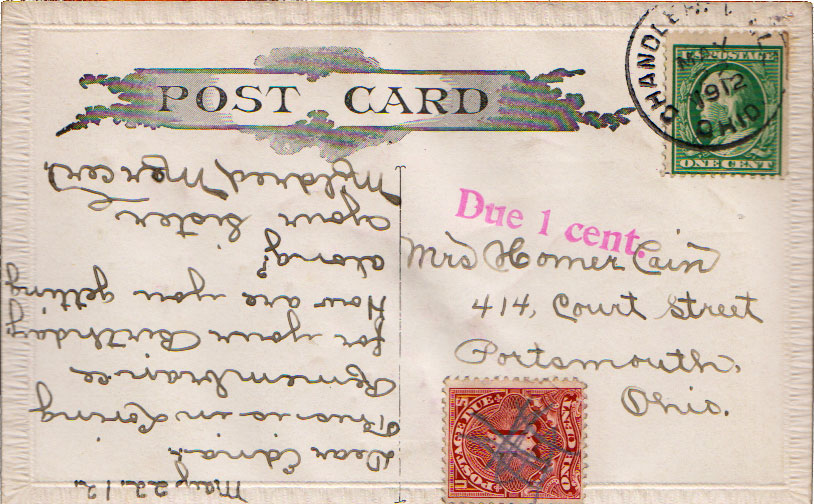 POST CARD
MAY
1912
OHIO
U.S. POSTAGE
ONE CENT
Due 1 cent.
Mrs Homer Cain
414, Court Street
Portsmouth,
Ohio.
POSTAGE DUE
ONE CENT
May 22. 12.
Dear Edna:-
This is in Loving
Remembrance
for your Birthday.
How are you getting
along?
your sister
Mildred Mercer.